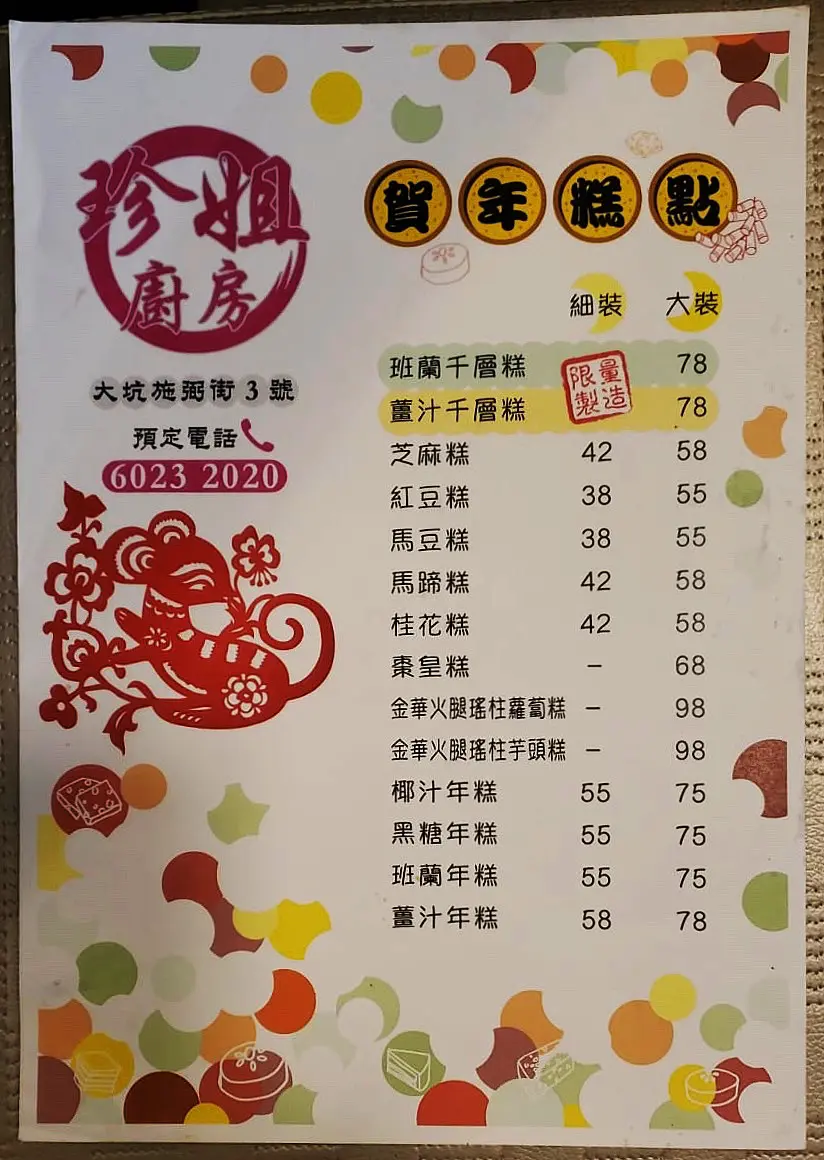 珍姐
廚房
大坑施弼街 3 號
預定電話
6023 2020
賀年糕點
細裝 大裝
班蘭千層糕 78
薑汁千層糕 78
限量
製造
芝麻糕 42 58
紅豆糕 38 55
馬豆糕 38 55
馬蹄糕 42 58
桂花糕 42 58
棗皇糕 – 68
金華火腿瑤柱蘿蔔糕 – 98
金華火腿瑤柱芋頭糕 – 98
椰汁年糕 55 75
黑糖年糕 55 75
班蘭年糕 55 75
薑汁年糕 58 78